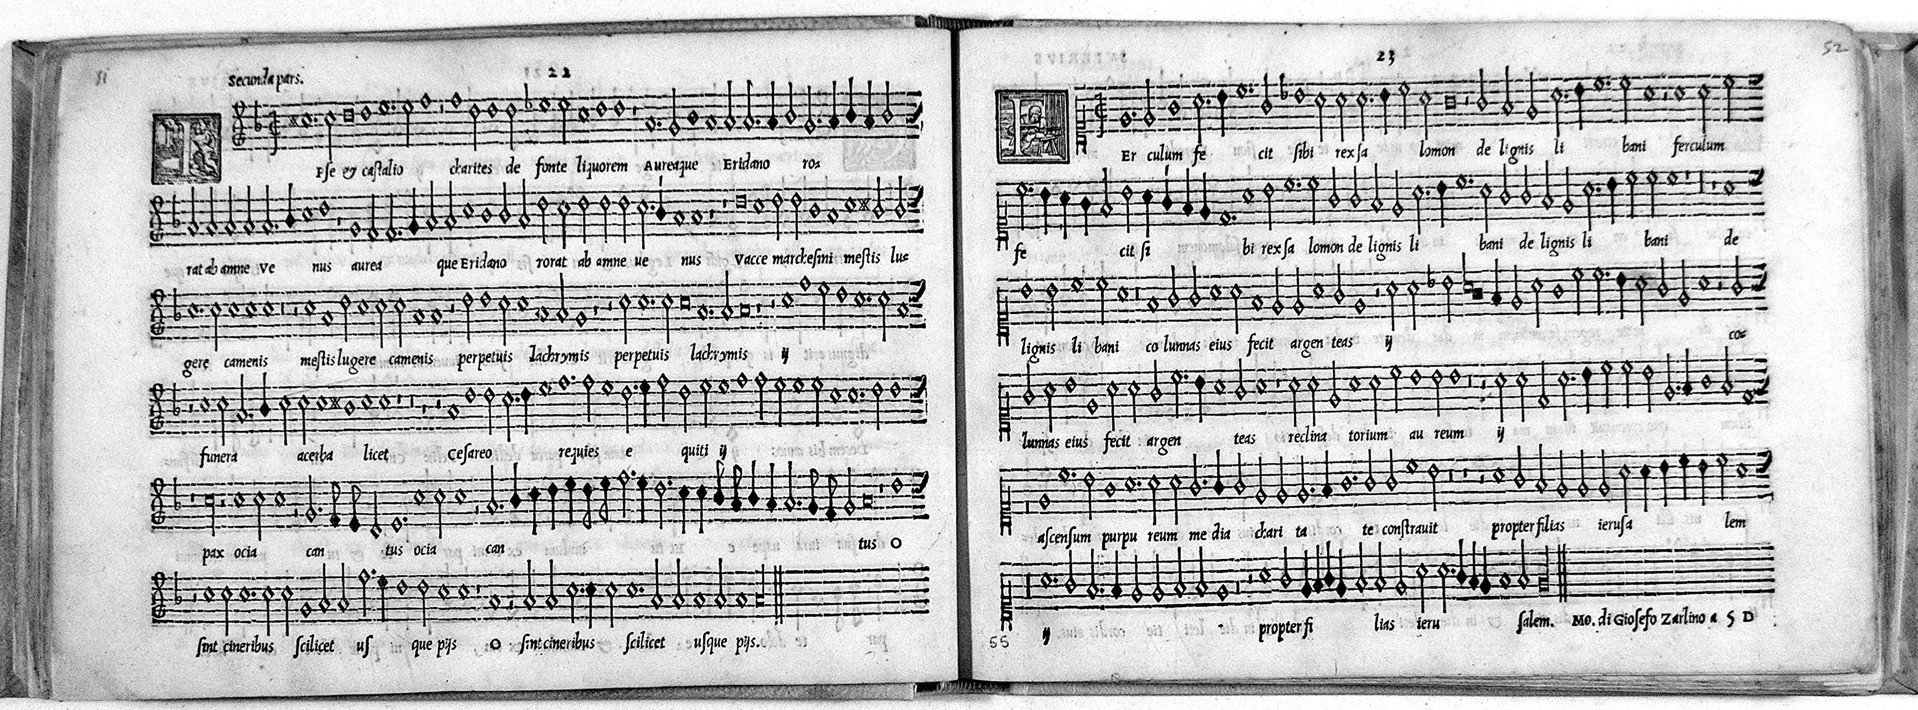 51
22
Secunda pars.
Pse & castalio charites de fonte liquorem Aureaque Eridano ro-
rat ab amne ve nus aurea que Eridano rorat ab amne ue nus Vacce marchesini mestis lu-
gere camenis mestis lugere camenis perpetuis lachrymis perpetuis lachrymis ij
funera acerba licet Cesareo requies e quiti ij
pax ocia can tus ocia can tus O
sint cineribus scilicet us que pijs O sint cineribus scilicet usque pijs.
52
23
FEr culum fe cit sibi rex sa lomon de lignis li bani ferculum
fe cit si bi rex sa lomon de lignis li bani de lignis li bani de
lignis li bani co lumnas eius fecit argen teas ij co-
lumnas eius fecit argen teas reclina torium au reum ij
ascensum purpu reum me dia chari ta te constrauit propter filias ierusa lem
ij propter fi lias ieru salem. Mo. di Giosefo Zarlino a 5 D
55